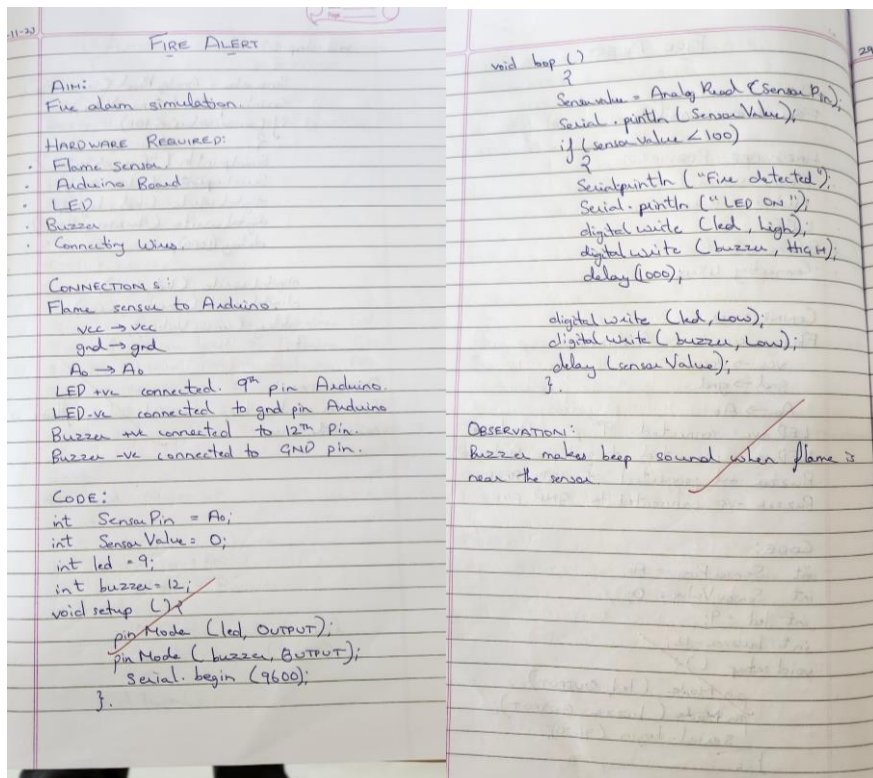 11-23
FIRE ALERT
AIM:
Fire alarm simulation.
HARDWARE REQUIRED:
· Flame sensor
· Arduino Board
· LED
· Buzzer
· Connecting Wires.
CONNECTIONS:
Flame sensor to Arduino.
vcc → vcc
gnd → gnd
A0 → A0
LED +ve connected. 9th pin Arduino.
LED -ve connected to gnd pin Arduino
Buzzer +ve connected to 12th Pin.
Buzzer -ve connected to GND pin.
CODE:
int SensorPin = A0;
int Sensor Value = 0;
int led = 9;
int buzzer = 12;
void setup () {
pin Mode (led, OUTPUT);
pin Mode (buzzer, OUTPUT);
serial. begin (9600);
}.
void loop ()
{
Sensorvalue = Analog Read (Sensor Pin);
Serial. println (Sensor Value);
if (sensor value < 100)
{
Serialprintln ("Fire detected");
Serial. println ("LED ON");
digital write (led, high);
digital write (buzzer, HIGH);
delay (1000);
digital write (led, Low);
digital write (buzzer, Low);
delay (sensor Value);
}.
OBSERVATION:
Buzzer makes beep sound when flame is
near the sensor.